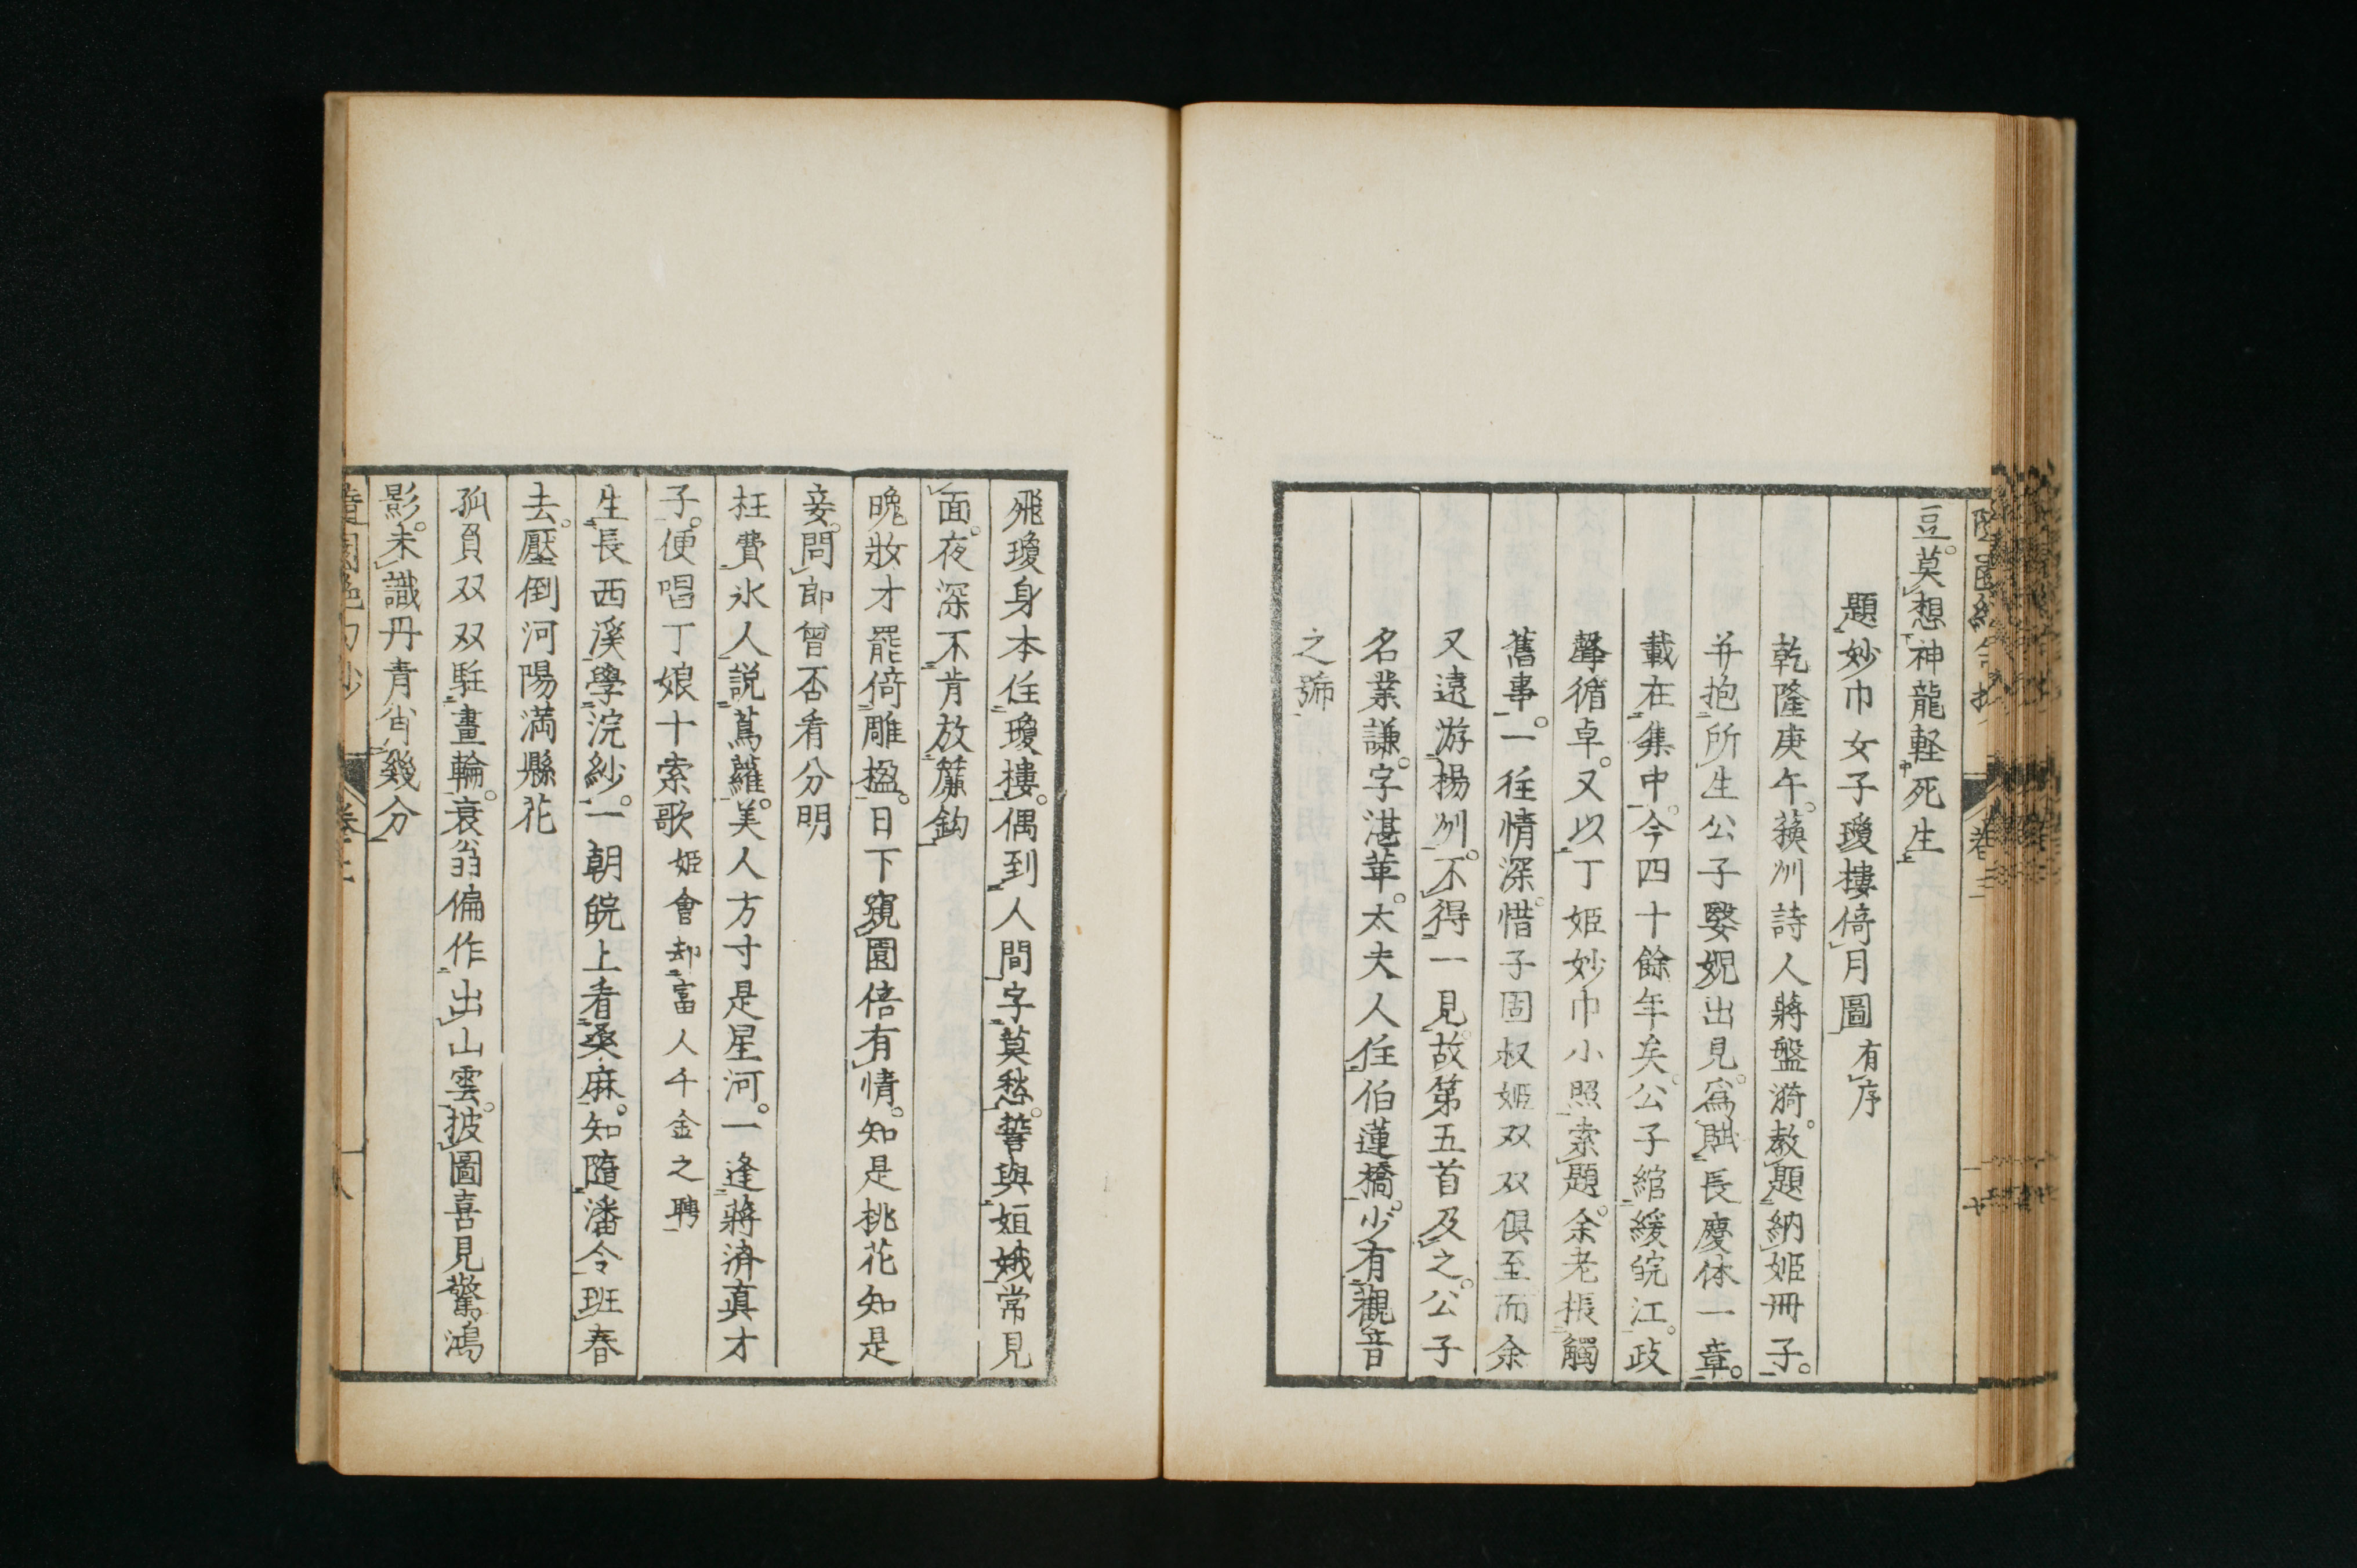 豆。莫想神龍軽死生
題妙巾女子瓊樓倚月圖有序
乾隆庚午。蘓州詩人蔣盤漪。教題納姬冊子。
并抱所生公子嫛婗出見。爲賦長慶体一章。
載在集中。今四十餘年矣。公子綰緩皖江。政
聲循卓。又以丁姬妙巾小照索題。余老棖觸
舊事。一往情深。惜子固叔姬双双俱至而余
又遠游揚州。不得一見。故第五首及之。公子
名業謙。字湛華。太夫人任伯蓮橋。少有觀音
之號
飛瓊身本住瓊樓。偶到人間字莫愁。誓與姮娥常見
面。夜深不肯放簾鈎
晚妝才罷倚雕楹。日下窺園倍有情。知是桃花知是
妾。問郎曾否看分明
枉費氷人說蔦蘿。美人方寸是星河。一逢蔣濟真才
子。便唱丁娘十索歌姬會却富人千金之聘
生長西溪學浣紗。一朝皖上看桑麻。知隨潘令班春
去。壓倒河陽満縣花
孤負双双駐畫輪。衰翁偏作出山雲。披圖喜見驚鴻
影。未識丹青省幾分
卷三